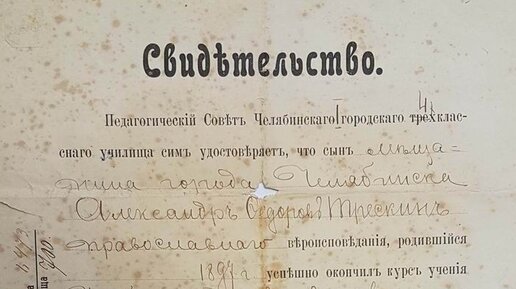 Свидѣтельство.
Педагогическій Совѣтъ Челябинскаго I городскаго 4х трехклас-
снаго училища симъ удостовѣряетъ, что сынъ мѣща-
нина города Челябинска
Александръ Ѳедоровъ Трескинъ
православнаго вѣроисповѣданія, родившійся
1897 г. успѣшно окончилъ курсъ ученія